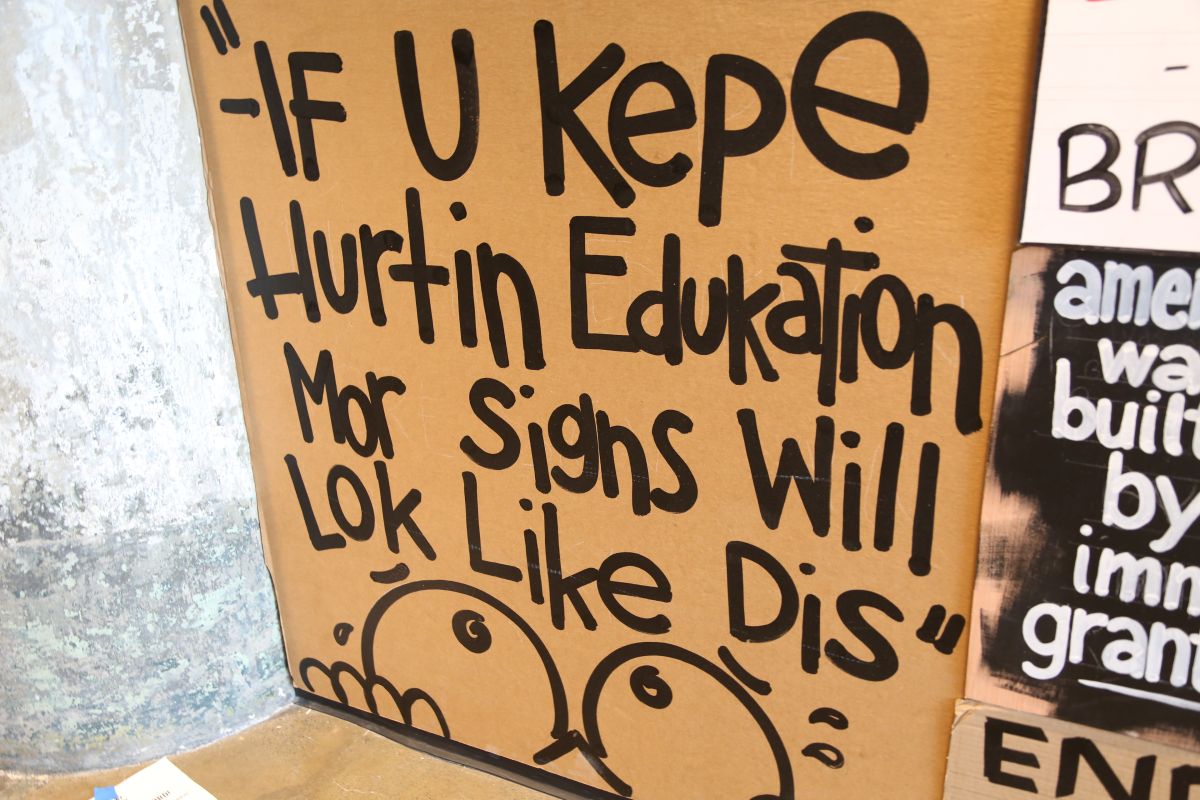 "IF U Kepe
Hurtin Edukation
Mor Signs Will
Lok Like Dis"
BR
amer
wa
built
by
imm
grant
EN